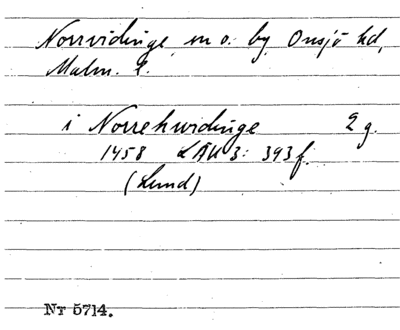 Norrvidinge sn o. by Onsjö hd,
Malm. l.
i Norrehwidinge 2 g.
1458 LÄU 3: 393 f.
(Lund)
Nr 5714.